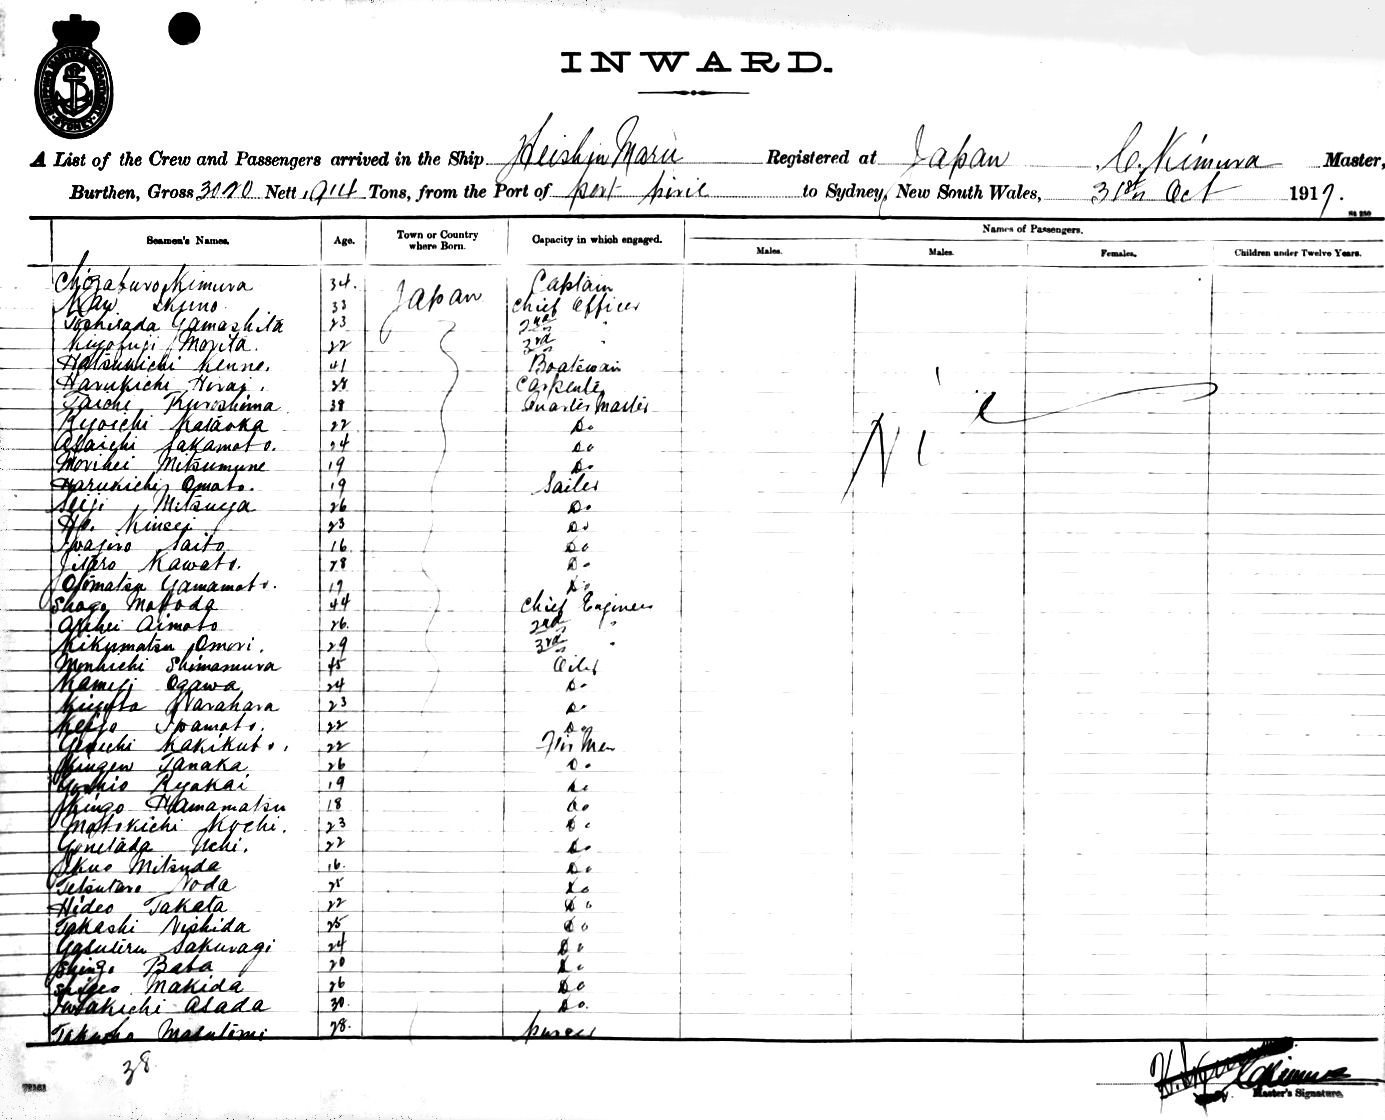 SHIPPING MASTER'S DEPARTMENT SYDNEY
INWARD.
A List of the Crew and Passengers arrived in the Ship Heishin Maru Registered at Japan C. Kimura Master,
Burthen, Gross 3020 Nett 1914 Tons, from the Port of port pirie to Sydney, New South Wales, 31st Oct 1917.
Seamen's Names. Age. Town or Country where Born. Capacity in which engaged. Names of Passengers.
Males. Males. Females. Children under Twelve Years.
Kimura 34. Japan Captain
33 Chief Officer
Toshisada Yamashita 23 2nd "
Morita. 22 3rd "
41 Boatswain
Harukichi Hirai. 38 Carpenter
Taichi Kuroshima 38 Quarter Master
Kyoichi Kataoka 22 Do
Asaichi Sakamoto. 24 Do
Morihei Mitsumune 19 Do
Harukichi Omoto. 19 Sailor
Seiji Mitsuya 26 Do
Kinsei 23 Do
Iwajiro Saito 16 Do
Jitaro Kawato. 28 Do
Otomatsu Yamamoto. 19 Do
Shogo Motoda 44 Chief Engineer
Aimoto 26. 2nd "
Kikumatsu Omori. 29 3rd "
Shimamura 45 Oiler
Kameji Ogawa 24 Do
Warahara 23 Do
Keizo Iwamoto. 22 Do
Genichi Kakikuto. 22 Fire Men
Tanaka 26 Do
Yoshio Ryokai 19 Do
Shingo Hamamatsu 18 Do
Motokichi Kochi. 23 Do
Yonetada Uchi. 22 Do
Ikuo Mitsuda 16. Do
Tetsutaro Noda 25 Do
Hideo Takata 22 Do
Takashi Nishida 25 Do
Yasuteru Sakuragi 24 Do
Shingo Baba 20 Do
Shigeo Makida 26 Do
Iwakichi Asada 30. Do.
Masutomi 28. purser
Nil
38
C Kimura
Master's Signature.